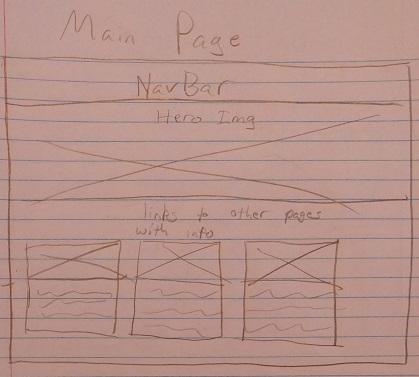 Main Page
NavBar
Hero Img
links to other pages
with info